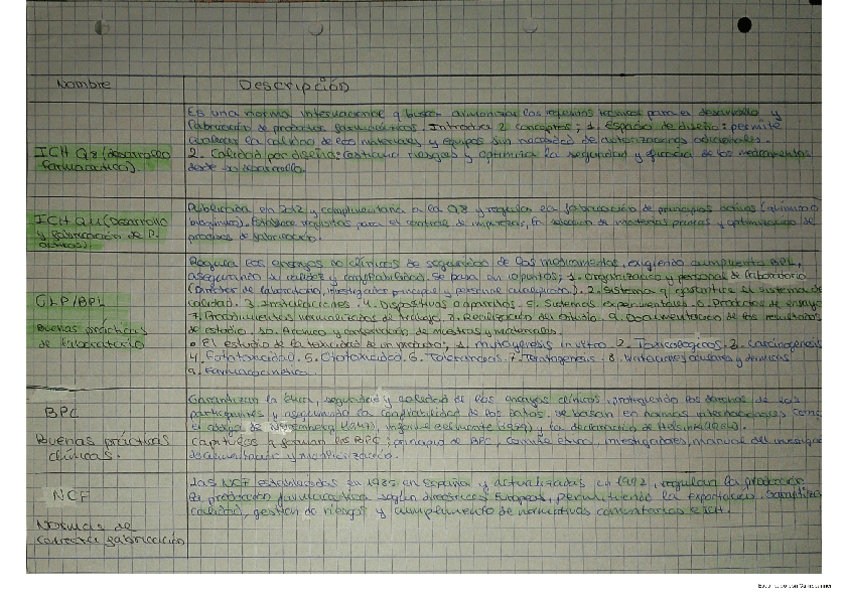 Nombre
Descripción
ICH Q8 (desarrollo
farmaceutico).
Es una norma internacional q busca armonizar los requisitos técnicos para el desarrollo y
fabricación de productos farmacéuticos. Introduce 2 conceptos; 1. Espacio de diseño: permite
la calidad de materiales y equipos sin necesidad de autorizaciones adicionales.
2. Calidad por diseño: riesgos y optimiza la seguridad y eficacia de los medicamentos
desde su desarrollo.
ICH Q11 (Desarrollo
y fabricación de P.
activos).
Publicada en 2012 y complementaria a la Q8 y regula la fabricación de principios activos (químicos
biológicos). Establece requisitos para el control de impurezas, la selección de materias primas y optimización de
procesos de fabricación.
GLP/BPL
Buenas prácticas
de laboratorio
Regula los ensayos no clínicos de seguridad de los medicamentos, exigiendo cumplimiento BPL,
asegurando la calidad y confiabilidad. Se basa en 10 puntos; 1. Organización y personal de laboratorio
(Director de laboratorio, investigador principal y personal cualificado). 2. Sistema q garantice el sistema de
calidad. 3. Instalaciones. 4. Dispositivos o aparatos. 5. Sistemas experimentales. 6. Productos de ensayo
7. Procedimientos normalizados de trabajo. 8. Realización del estudio. 9. Documentación de los resultados
de estudio. 10. Archivo y conservación de muestras y materiales.
El estudio de la toxicidad de un producto; 1. Mutogenesis in vitro. 2. Toxicológicos. 3. Carcinogenesis
4. Fototoxicidad. 5. Ototoxicidad. 6. Tolerancias. 7. Teratogenesis. 8. oculares y dermicas
9. Farmacocinética.
BPC
Buenas prácticas
clínicas.
Garantizan la ética, seguridad y calidad de los ensayos clínicos, protegiendo los derechos de los
participantes y asegurando la confiabilidad de los datos. Se basan en normas internacionales como
el código de Nuremberg (1947), informe Belmont y la declaración de Helsinki.
Capítulos; principio de BPC, comité ético, investigadores, manual del investigador
NCF
Normas de
correcta fabricación
Las NCF establecidas en 1985 en España y actualizadas en 1992, regulan la producción
farmacéutica según directrices Europeas, permitiendo la exportación. Garantizan
calidad, gestión de riesgos y cumplimiento de normativas comunitarias e ICH.